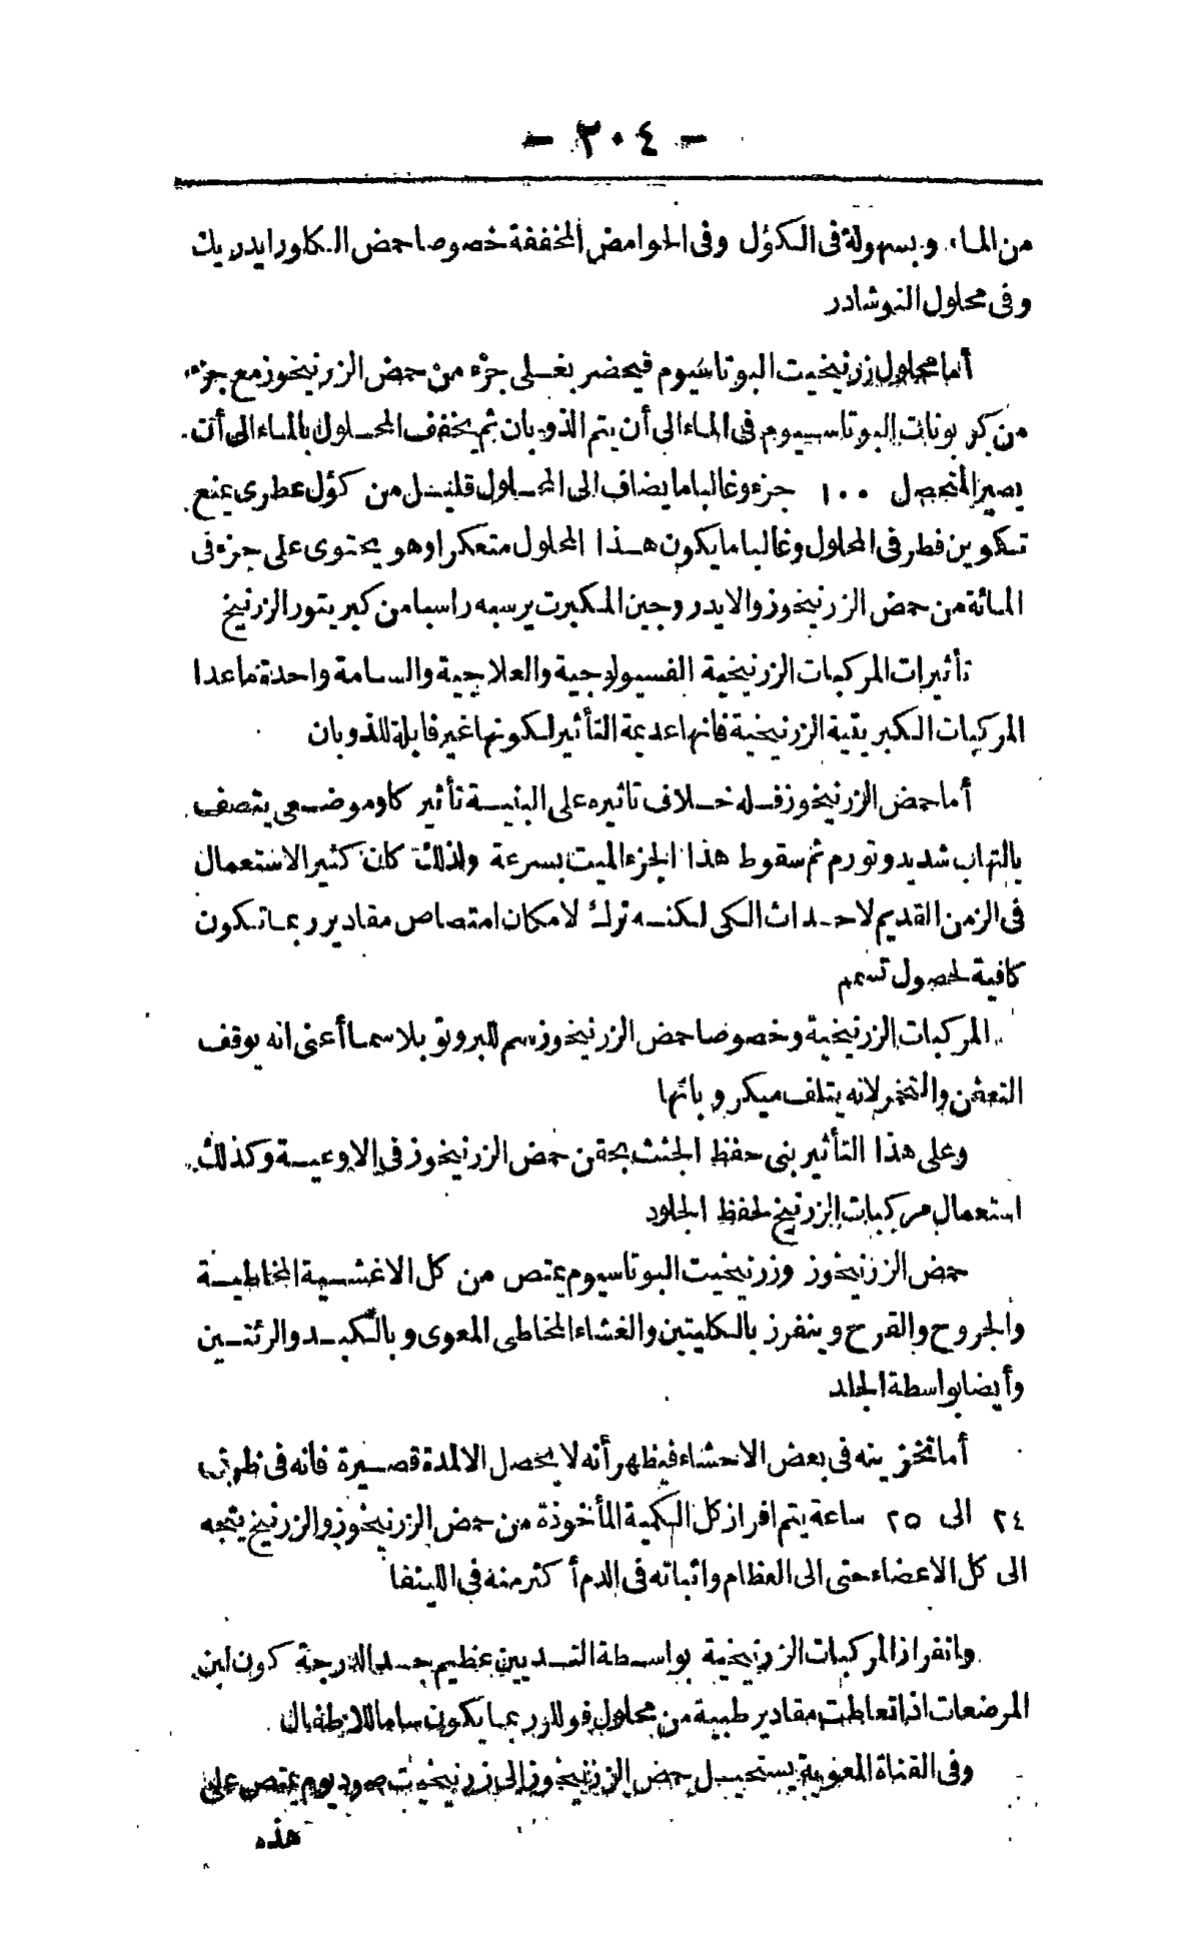 - ٣٠٤ -
من الماء وبسهولة فى الكؤل وفى الحوامض المخففة خصوصا حمض الكلورايدريك
وفى محلول النوشادر
أما محلول زرنيخيت البوتاسيوم فيحضر بغلى جزء من حمض الزرنيخوز مع جزء
من كربونات البوتاسيوم فى الماء الى أن يتم الذوبان ثم يخفف المحلول بالماء الى أن
يصير المتحصل ١٠٠ جزء وغالبا ما يضاف الى المحلول قليل من كؤل عطرى يمنع
تكوين فطر فى المحلول وغالبا ما يكون هذا المحلول متعكرا وهو يحتوى على جزء فى
المائة من حمض الزرنيخوز والايدروجين المكبرت يرسبه راسبا من كبريتور الزرنيخ
تأثيرات المركبات الزرنيخية الفسيولوجية والعلاجية والسامة واحدة ماعدا
المركبات الكبريتية الزرنيخية فانها عديمة التأثير لكونها غير قابلة للذوبان
أما حمض الزرنيخوز فله خلاف تاثيره على البنية تأثير كاو موضعى يتصف
بالتهاب شديد وتورم ثم سقوط هذا الجزء الميت بسرعة ولذلك كان كثير الاستعمال
فى الزمن القديم لاحداث الكى لكنه ترك لامكان امتصاص مقادير ربما تكون
كافية لحصول تسمم
المركبات الزرنيخية وخصوصا حمض الزرنيخوز سم للبروتوبلاسما أعنى انه يوقف
التعفن والتخمر لانه يتلف ميكروباتها
وعلى هذا التأثير بنى حفظ الجثث بحقن حمض الزرنيخوز فى الاوعية وكذلك
استعمال مركبات الزرنيخ لحفظ الجلود
حمض الزرنيخوز وزرنيخيت البوتاسيوم يمتص من كل الاغشية المخاطية
والجروح والقرح وينفرز بالكليتين والغشاء المخاطى المعوى وبالكبد والرئتين
وأيضا بواسطة الجلد
أما تخزينه فى بعض الاحشاء فيظهر أنه لا يحصل الا لمدة قصيرة فانه فى ظرف
٢٤ الى ٢٥ ساعة يتم افراز كل الكمية المأخوذة من حمض الزرنيخوز والزرنيخ يتجه
الى كل الاعضاء حتى الى العظام واثباته فى الدم أكثر منه فى اللينفا
وانفراز المركبات الزرنيخية بواسطة الثديين عظيم جدا لدرجة كون لبن
المرضعات اذا تعاطت مقادير طبية من محلول فوللر ربما يكون ساما للاطفال
وفى القناة المعوية يستحيل حمض الزرنيخوز الى زرنيخيت صوديوم يمتص على
هذه